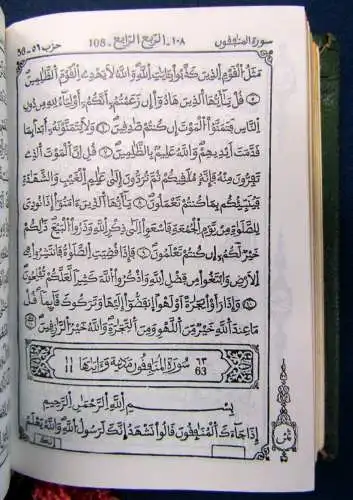 سورة المنافقون ١٠٨ - الربع الرابع - 108 حزب ٥٦ - 56
مثل القوم الذين كذبوا بءايات الله والله لا يهدى القوم الظالمين
قل يأيها الذين هادوا إن زعمتم أنكم أولياء لله من دون
الناس فتمنوا الموت إن كنتم صادقين ولا يتمنونه أبدا بما
قدمت أيديهم والله عليم بالظالمين قل إن الموت الذى
تفرون منه فإنه ملاقيكم ثم تردون إلى عالم الغيب والشهادة
فينبئكم بما كنتم تعملون يأيها الذين ءامنوا إذا نودى
للصلواة من يوم الجمعة فاسعوا الى ذكر الله وذروا البيع ذالكم
خير لكم إن كنتم تعلمون فإذا قضيت الصلواة فانتشروا فى
الأرض وابتغوا من فضل الله واذكروا الله كثيرا لعلكم تفلحون
وإذا رأوا تجارة أو لهوا انفضوا إليها وتركوك قايما قل
ما عند الله خير من اللهو ومن التجارة والله خير الرازقين
سورة المنافقون مدنية وءايتها 11 ٦٣ 63
بسم الله الرحمان الرحيم
إذا جاءك المنافقون قالوا نشهد إنك لرسول الله والله يعلم
إنك
ثمن